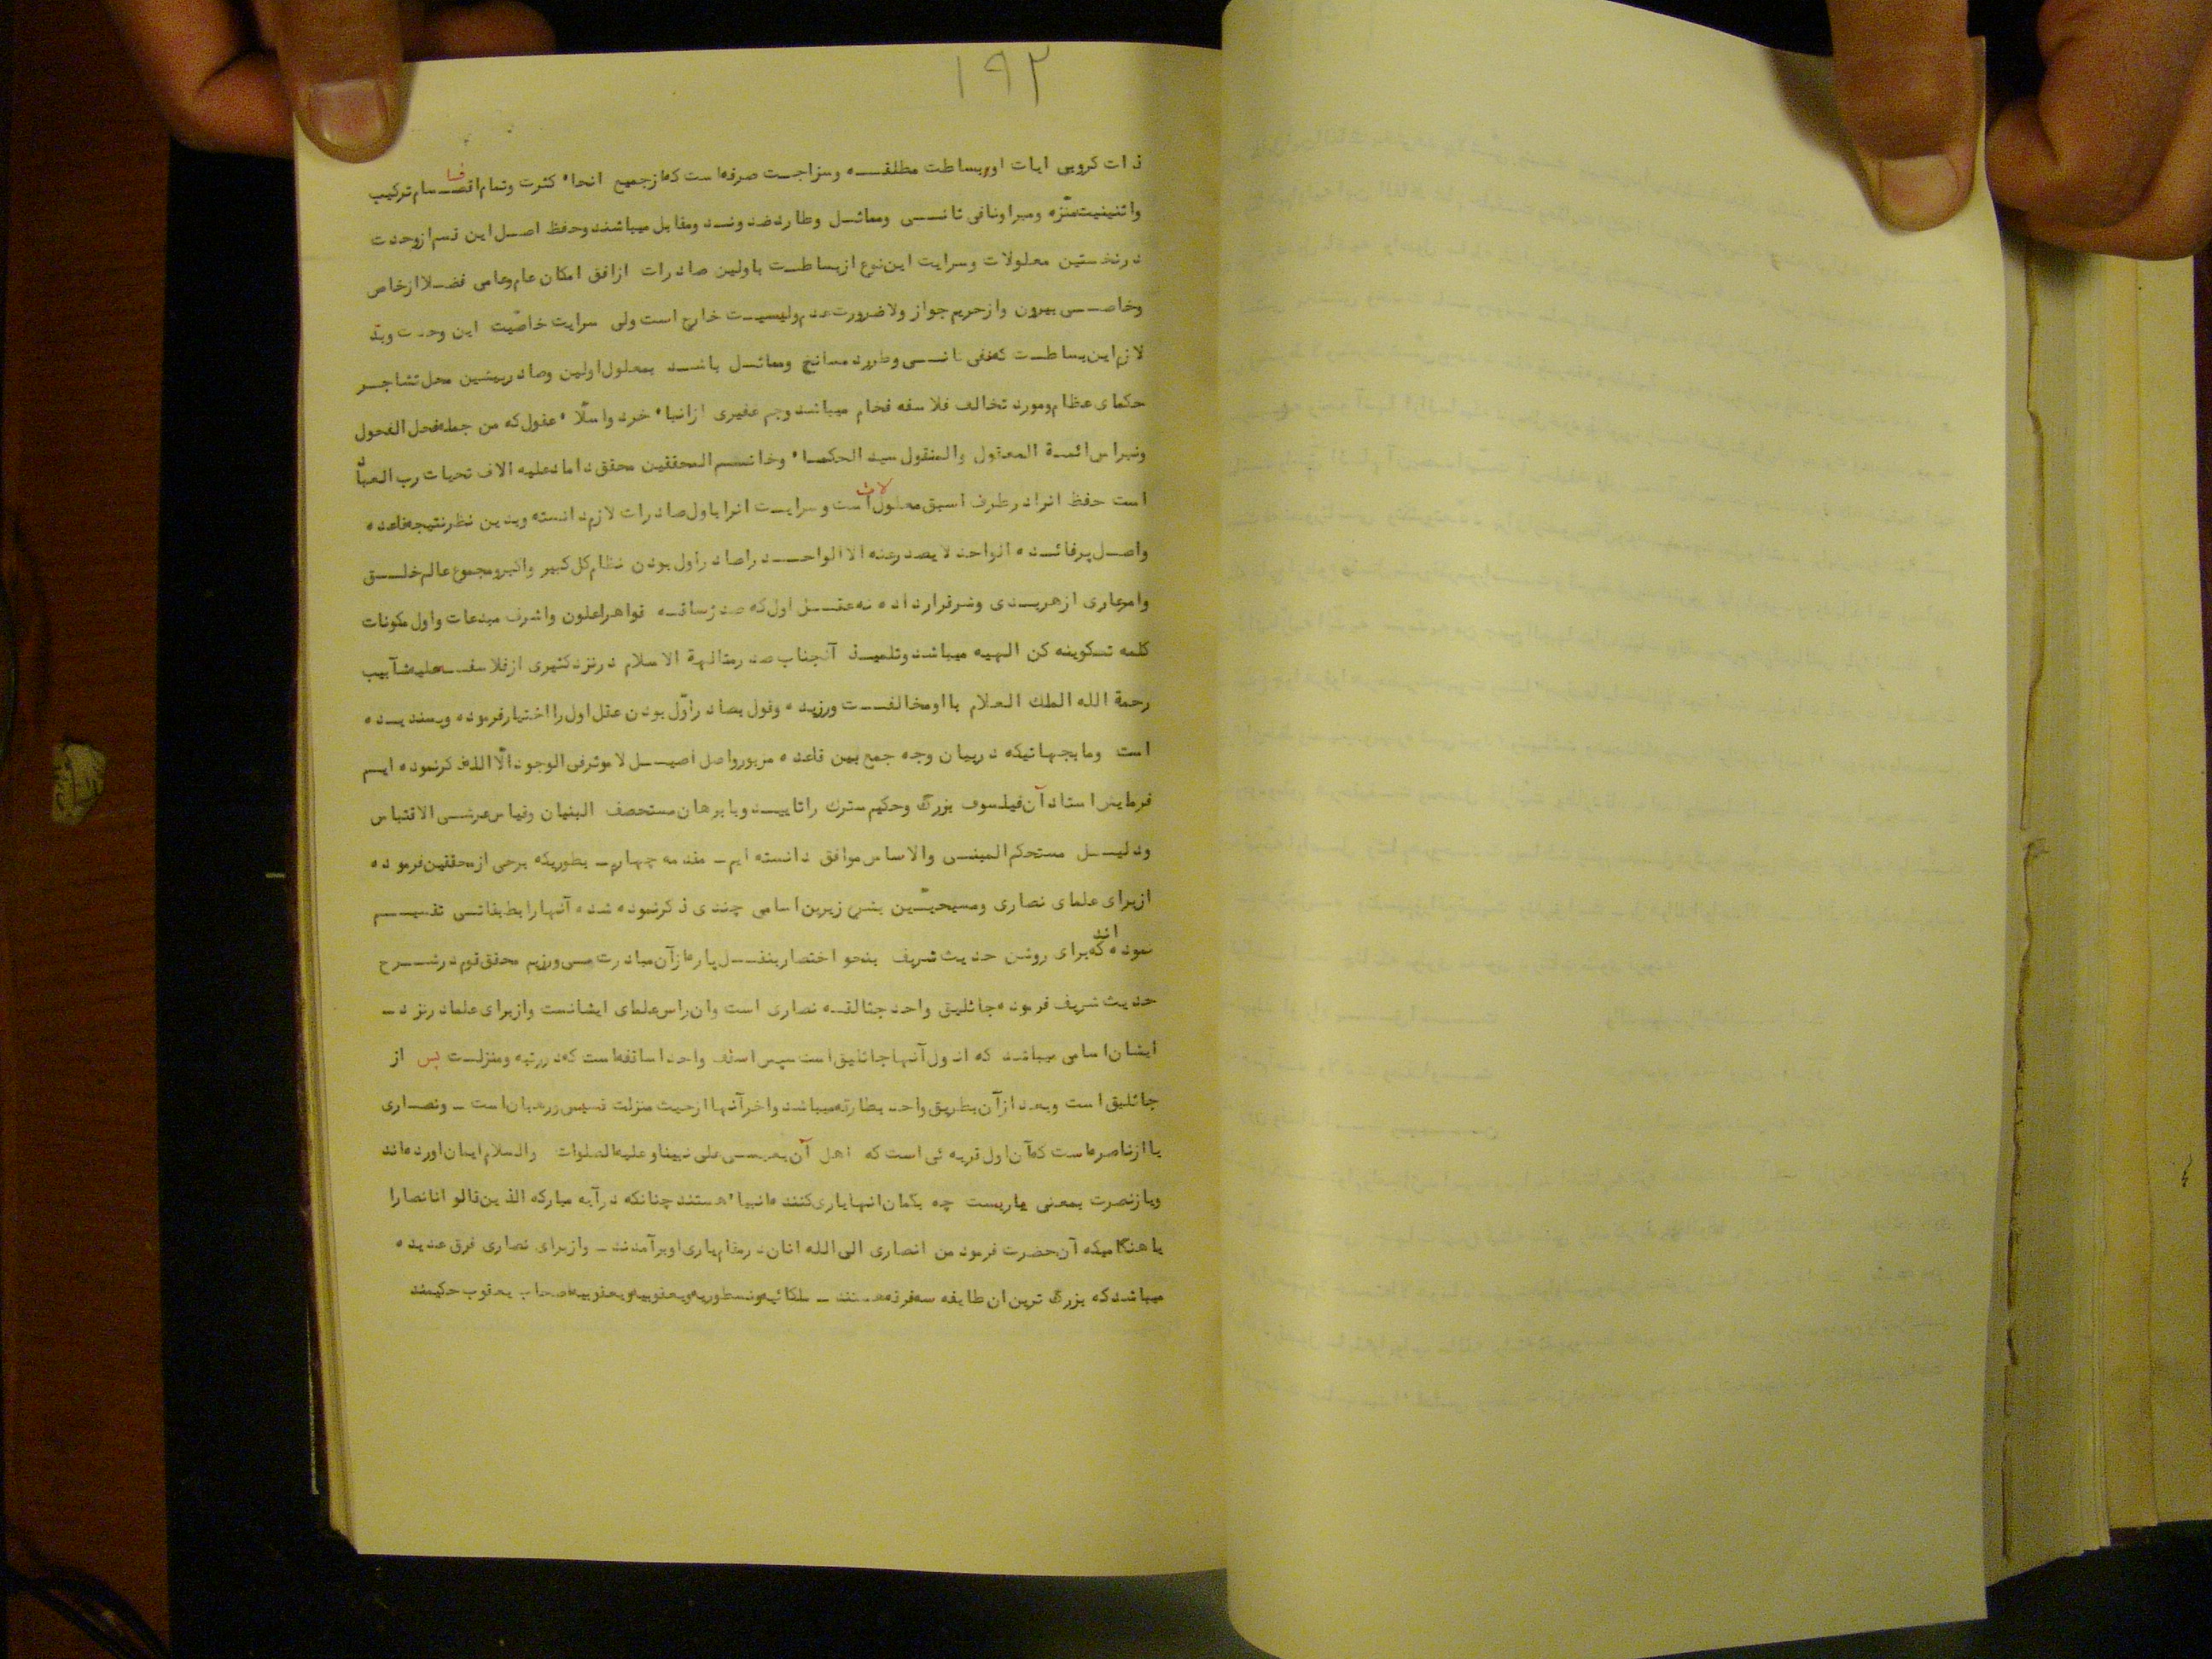 ۱۹۲
ذات کروبی ایات او و بساطت مطلقه و سزاجت صرفه است که از جمیع انحاء کثرت و تمام اقسام ترکیب
و اثنینیت منزّه و مبرا و نافی ثانی و مماثل و طارد ضد و ند و مقابل میباشند و حفظ اصل این قسم از وحدت
در نخستین معلولات و سرایت این نوع از بساطت باولین صادرات از افق امکان عام و عامی فضلا از خاص
و خاصی بیرون و از حریم جواز و لا ضرورت عدم و لیسیت خارج است ولی سرایت خاصّیت این وحدت و
لازم این بساطت که نفی ثانی و طرد مسانخ و مماثل باشد بمعلول اولین و صادر پیشین محل تشاجر
حکمای عظام و مورد تخالف فلاسفه فخام میباشد و جم غفیری از انباء خرد و اسلّاء عقول که من جمله فحل الفحول
و نبراس ائمة المعقول و المنقول سید الحکماء و خاتم المحققین محقق داماد علیه الاف تحیات رب العباد
است حفظ انرا در طرف اسبق معلولات و سرایت انرا باول صادرات لازم دانسته و بدین نظر نتیجه قاعده
و اصل پرفائده الواحد لا یصدر عنه الا الواحد را صادر اول بودن نظام کل کبیر و اکبر و مجموع عالم خلق
و امر عاری از هر بدی و شر قرار داده نه عقل اول که صدر ساقه قواهر اعلون و اشرف مبدعات و اول مکونات
کلمه تکوینه کن الهیه میباشد و تلمیذ آنجناب صدر متالهة الاسلام در نزد کثیری از فلاسفه علیه شآبیب
رحمة الله الملك العلام با او مخالفت ورزیده و قول بصادر اوّل بودن عقل اول را اختیار فرموده و پسندیده
است و ما بجهاتیکه در بیان وجه جمع بین قاعده مزبور و اصل اصیل لا موثر فی الوجود الّا الله ذکر نموده ایم
فرمایش استاد آن فیلسوف بزرگ و حکیم سترك را تایید و با برهان مستحصف البنیان و قیاس عرشی الاقتباس
و دلیل مستحکم المبنی و الاساس موافق دانسته ایم ـ مقدمه چهارم ـ بطوریکه برخی از محققین فرموده
از برای علمای نصاری و مسیحیّین بشرح زیرین اسامی چندی ذکر نموده شده آنها را بطبقاتی تقسیم
نموده اند که برای روشن حدیث شریف بنحو اختصار بنقل پاره از آن مبادرت می ورزیم محقق قوم در شرح
حدیث شریف فرموده جاثلیق واحد جثالقه نصاری است و ان راس علمای ایشانست و از برای علما در نزد ـ
ایشان اسامی میباشد که اول آنها جاثلیق است سپس اسقف واحد اساقفه است که در رتبه و منزلت پس از
جاثلیق است و بعد از آن بطریق واحد بطارقه میباشد و اخر آنها از حیث منزلت قسیس و رهبان است ـ و نصاری
یا از ناصره است که آن اول قریه ئی است که اهل آن بعیسی علی نبینا و علیه الصلوات والسلام ایمان اورده اند
و یا از نصرت بمعنی یاریست چه بگمان انها یاری کننده انبیاء هستند چنانکه در آیه مبارکه الذین قالو انا نصارا
یا هنگامیکه آن حضرت فرمود من انصاری الی الله انان در مقام یاری او برآمدند ـ و از برای نصاری فرق عدیده
میباشد که بزرگ ترین ان طایفه سه فرقه هستند ـ ملکائیه و نسطوریه و یعقوبیه و یعقوبیه اصحاب یعقوب حکیمند